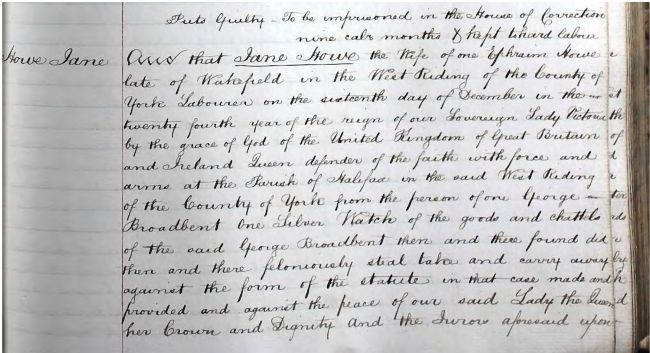 Puts Guilty - To be imprisoned in the House of Correction
nine calr months & kept to hard labour
Howe Jane And that Jane Howe the Wife of one Ephraim Howe
late of Wakefield in the West Riding of the County of
York Labourer on the sixteenth day of December in the
twenty fourth year of the reign of our Sovereign Lady Victoria
by the grace of God of the United Kingdom of Great Britain
and Ireland Queen defender of the faith with force and
arms at the Parish of Halifax in the said West Riding
of the County of York from the person of one George
Broadbent One Silver Watch of the goods and chattels
of the said George Broadbent then and there found did
then and there feloniously steal take and carry away
against the form of the statute in that case made and
provided and against the peace of our said Lady the Queen
her Crown and Dignity And the Jurors aforesaid upon